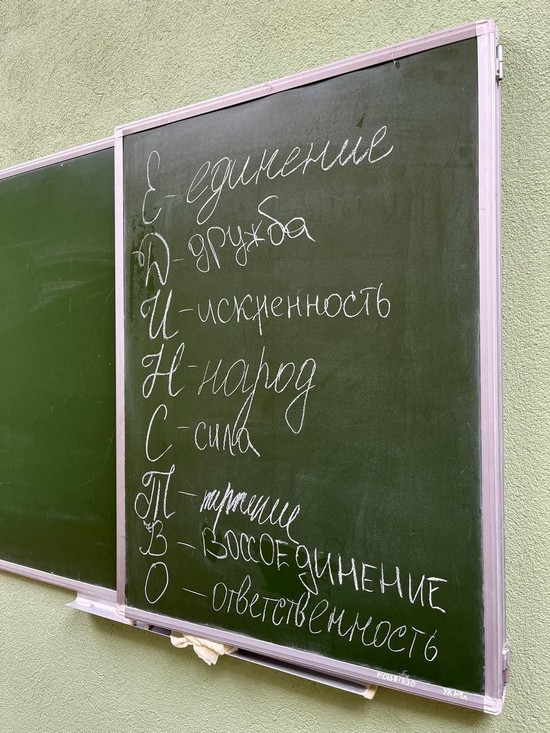 Е - единение
Д - дружба
И - искренность
Н - народ
С - сила
Т - терпение
В - ВОССОЕДИНЕНИЕ
О - ответственность